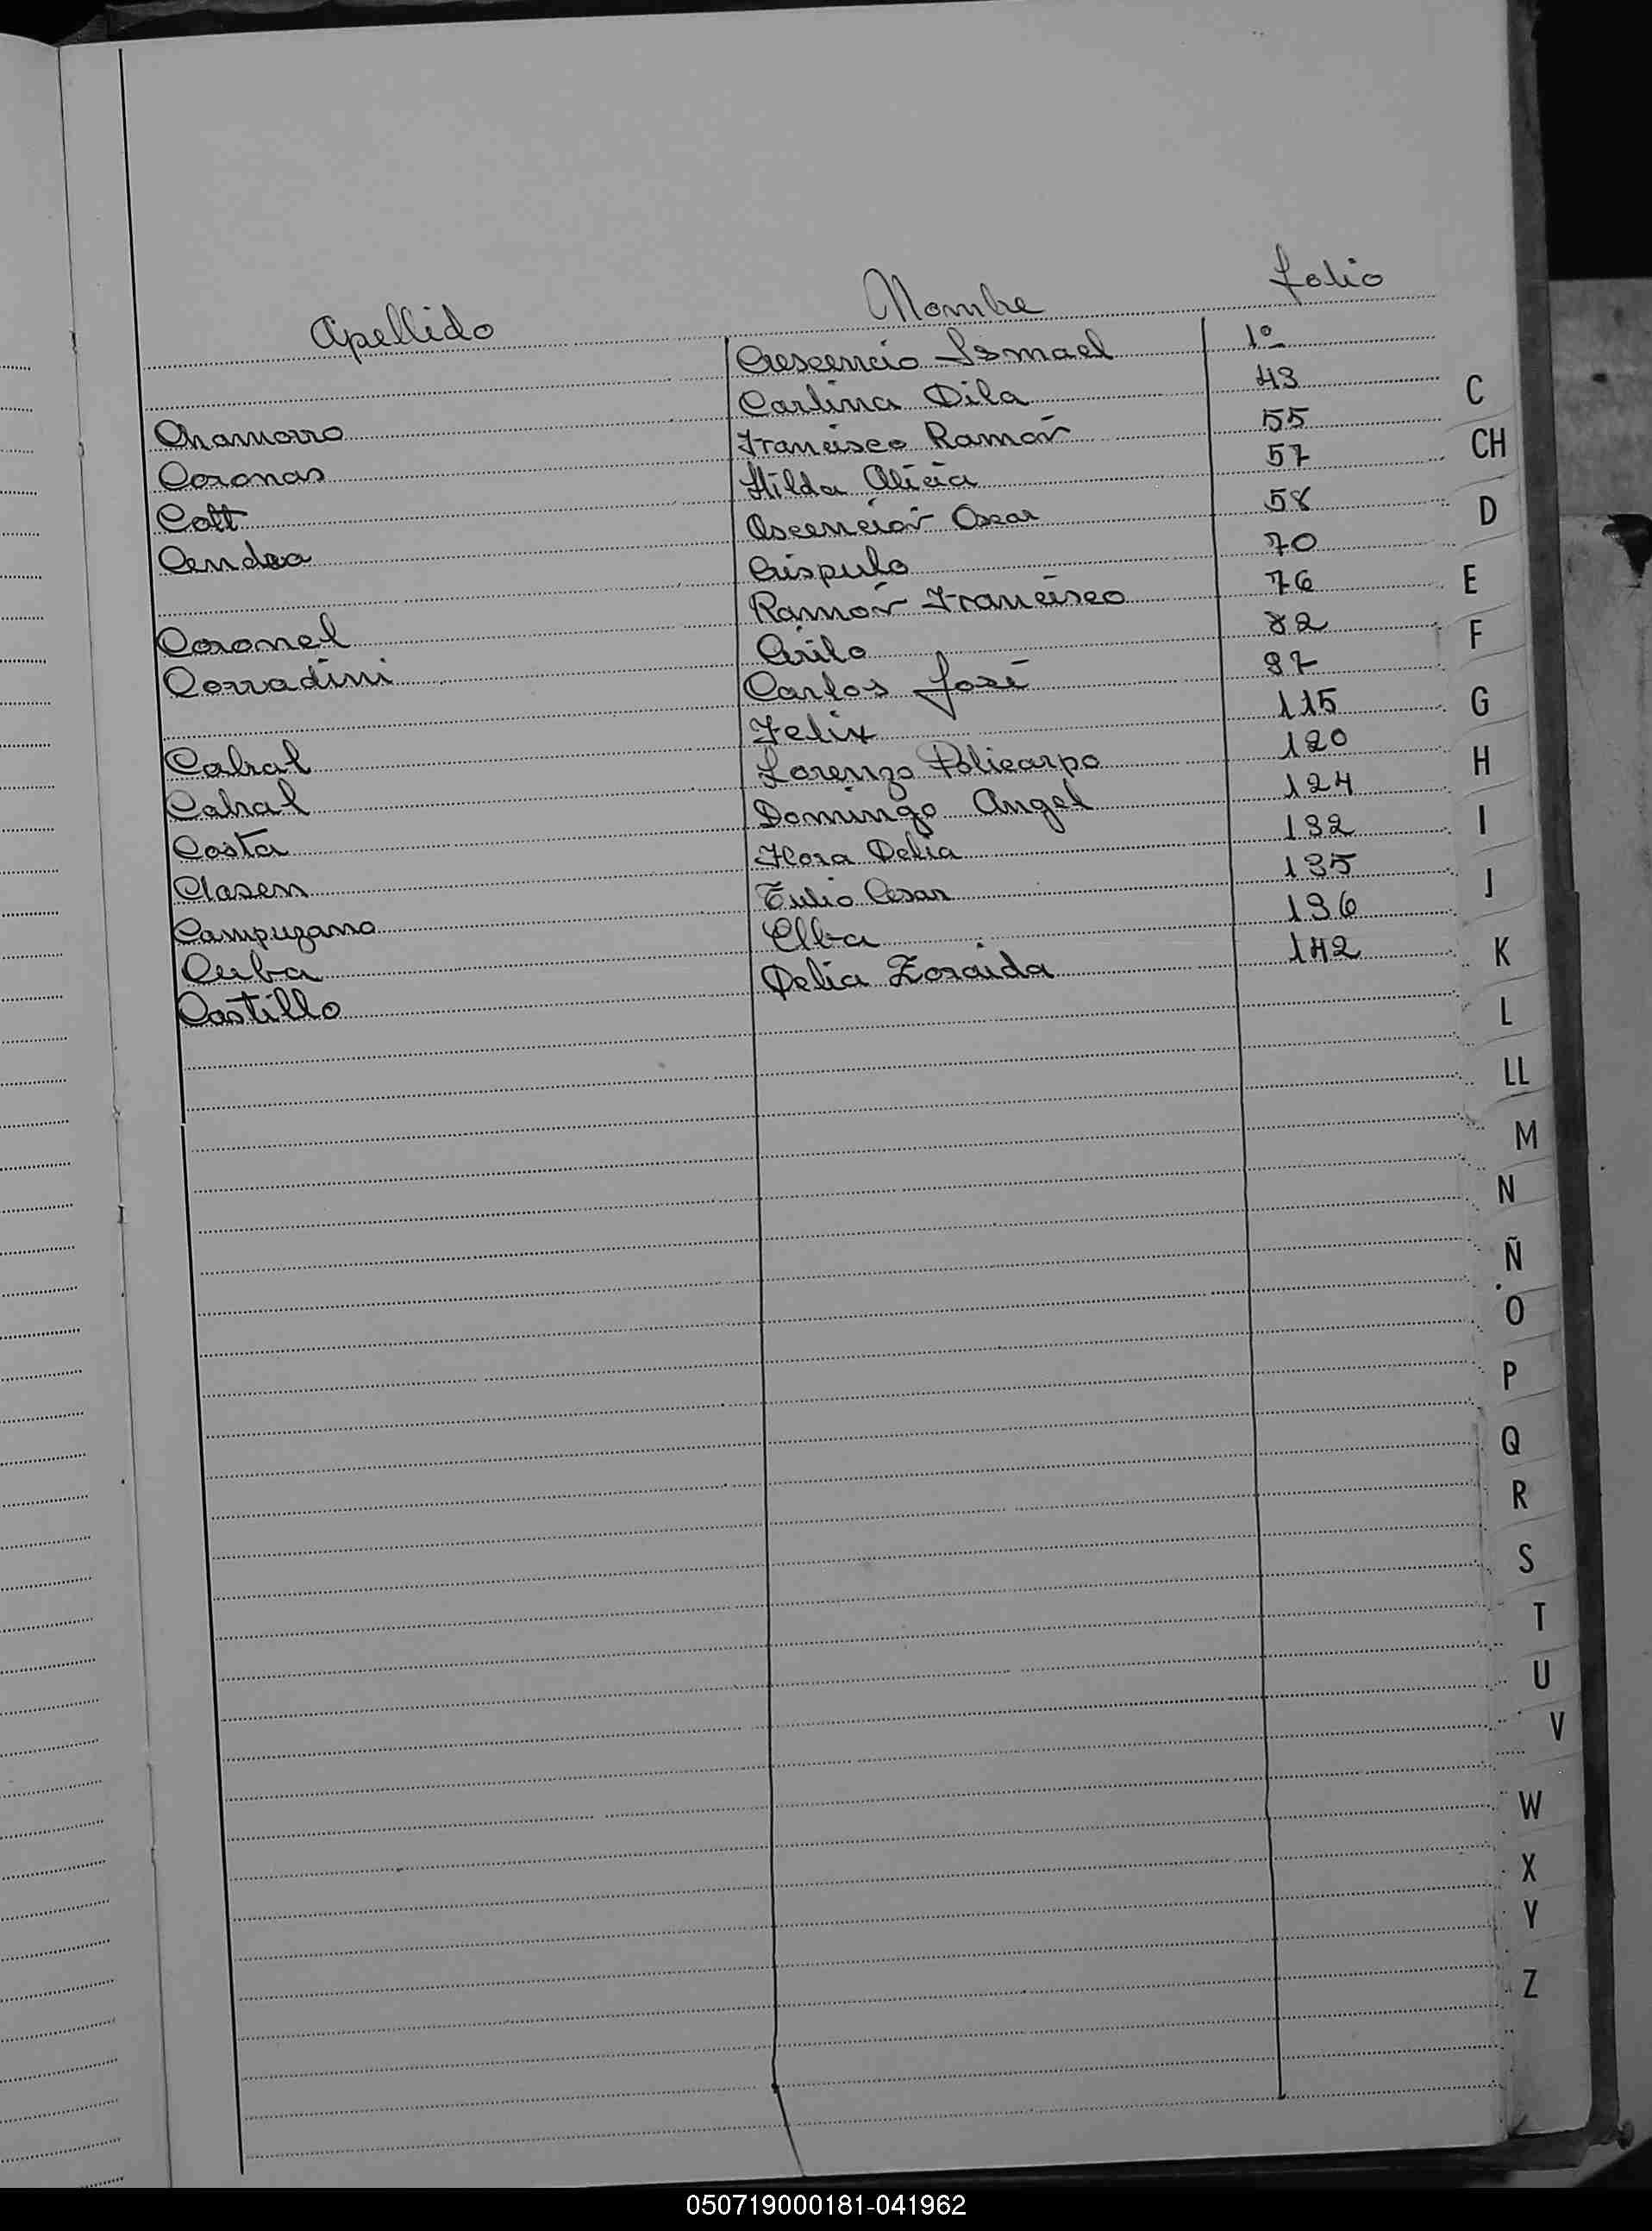 Apellido Nombre folio
Crescencio Ismael 1º
Chamorro Carlina Dila 43
Coronas Francisco Ramón 55
Cott Hilda Alicia 57
Cendra Ascención Oscar 58
Crispulo 70
Coronel Ramón Francisco 76
Corradini Cirilo 82
Carlos José 87
Cabral Felix 115
Cabral Lorenzo Policarpo 120
Costa Domingo Angel 124
Clasen Flora Delia 132
Campuzano Tulio Cesar 135
Cuba Elba 136
Castillo Delia Zoraida 142
C
CH
D
E
F
G
H
I
J
K
L
LL
M
N
Ñ
O
P
Q
R
S
T
U
V
W
X
Y
Z
050719000181-041962